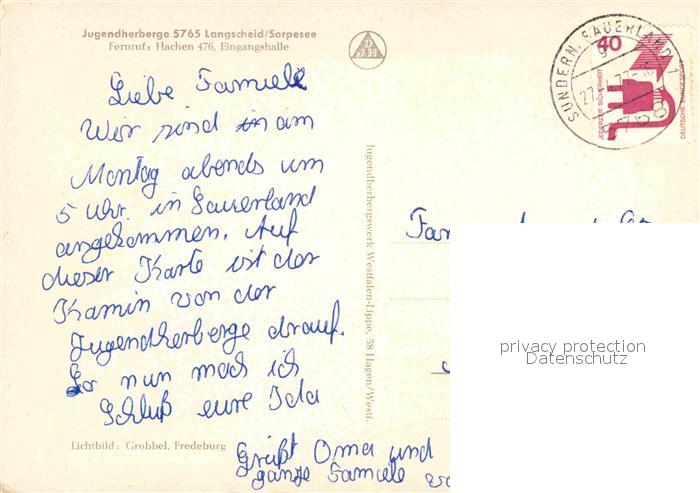 Jugendherberge 5765 Langscheid/Sorpesee
Fernruf: Hachen 476, Eingangshalle
Liebe Famiele
Wir sind am
Montag abends um
5 Uhr. in Sauerland
angekommen. Auf
dieser Karte ist der
Kamin von der
Jugendherberge drauf.
So nun mach ich
Schluß eure Ida
Grüßt Oma und
ganze Famiele
Lichtbild: Grobbel, Fredeburg
Jugendherbergswerk Westfalen-Lippe, 58 Hagen/Westf.
SUNDERN, SAUERLAND 1
5768
40
JEDERZEIT SICHERHEIT
DEUTSCHE BUNDESPOST
Fam
privacy protection
Datenschutz